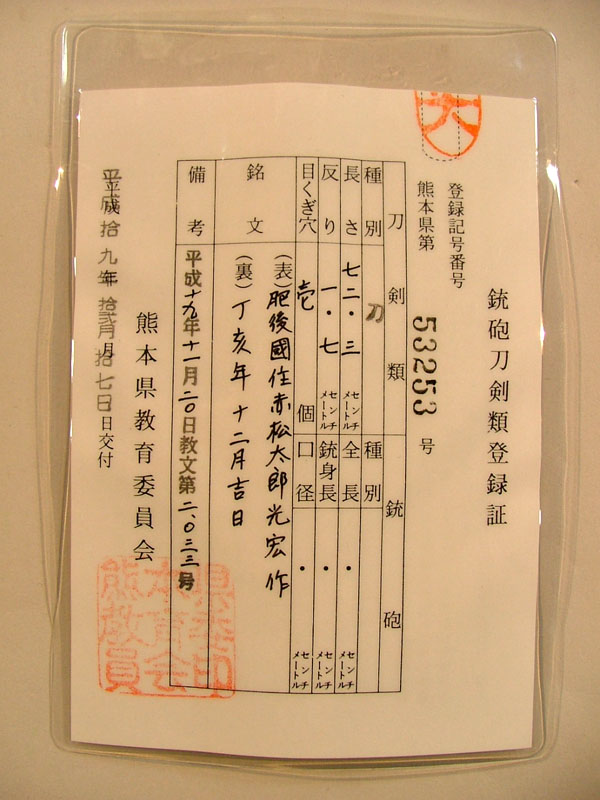 銃砲刀剣類登録証
登録記号番号
熊本県第 53253 号
刀剣類 銃砲
種別 刀 種別
長さ 七二・三 センチメートル 全長 ・ センチメートル
反り 一・七 センチメートル 銃身長 ・ センチメートル
目くぎ穴 壱 個 口径 ・ センチメートル
銘文 (表)肥後國住赤松太郎光宏作
(裏)丁亥年十二月吉日
備考 平成十九年十一月二〇日教文第二、〇三三号
熊本県教育委員会
平成拾九年拾弐月拾七日交付
熊本県教育委員会印